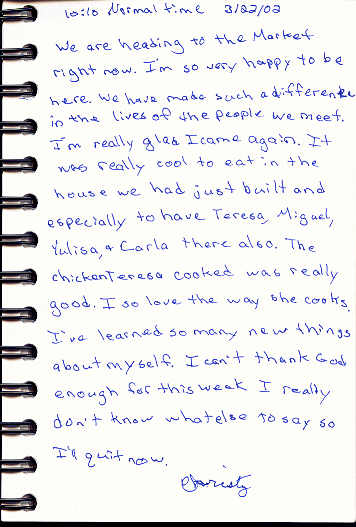 10:10 Normal time 3/22/02
We are heading to the Market
right now. I'm so very happy to be
here. We have made such a difference
in the lives of the people we meet.
I'm really glad I came again. It
was really cool to eat in the
house we had just built and
especially to have Teresa, Miguel,
Yulisa, & Carla there also. The
chicken Teresa cooked was really
good. I so love the way she cooks.
I've learned so many new things
about myself. I can't thank God
enough for this week I really
don't know what else to say so
I'll quit now.
Christy